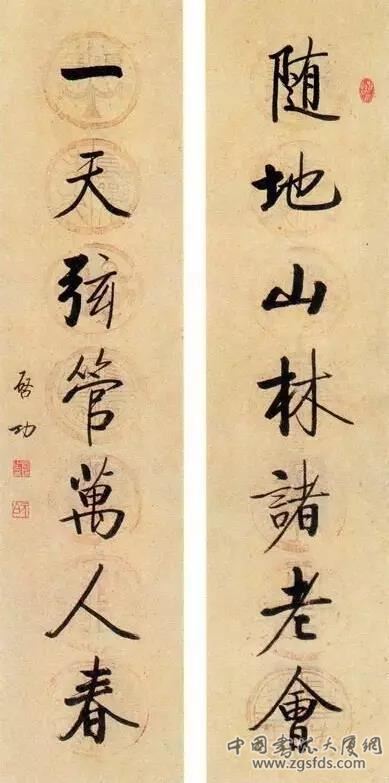 随地山林諸老會
一天弦管萬人春
启功
中国书法大厦网
www.zgsfds.com